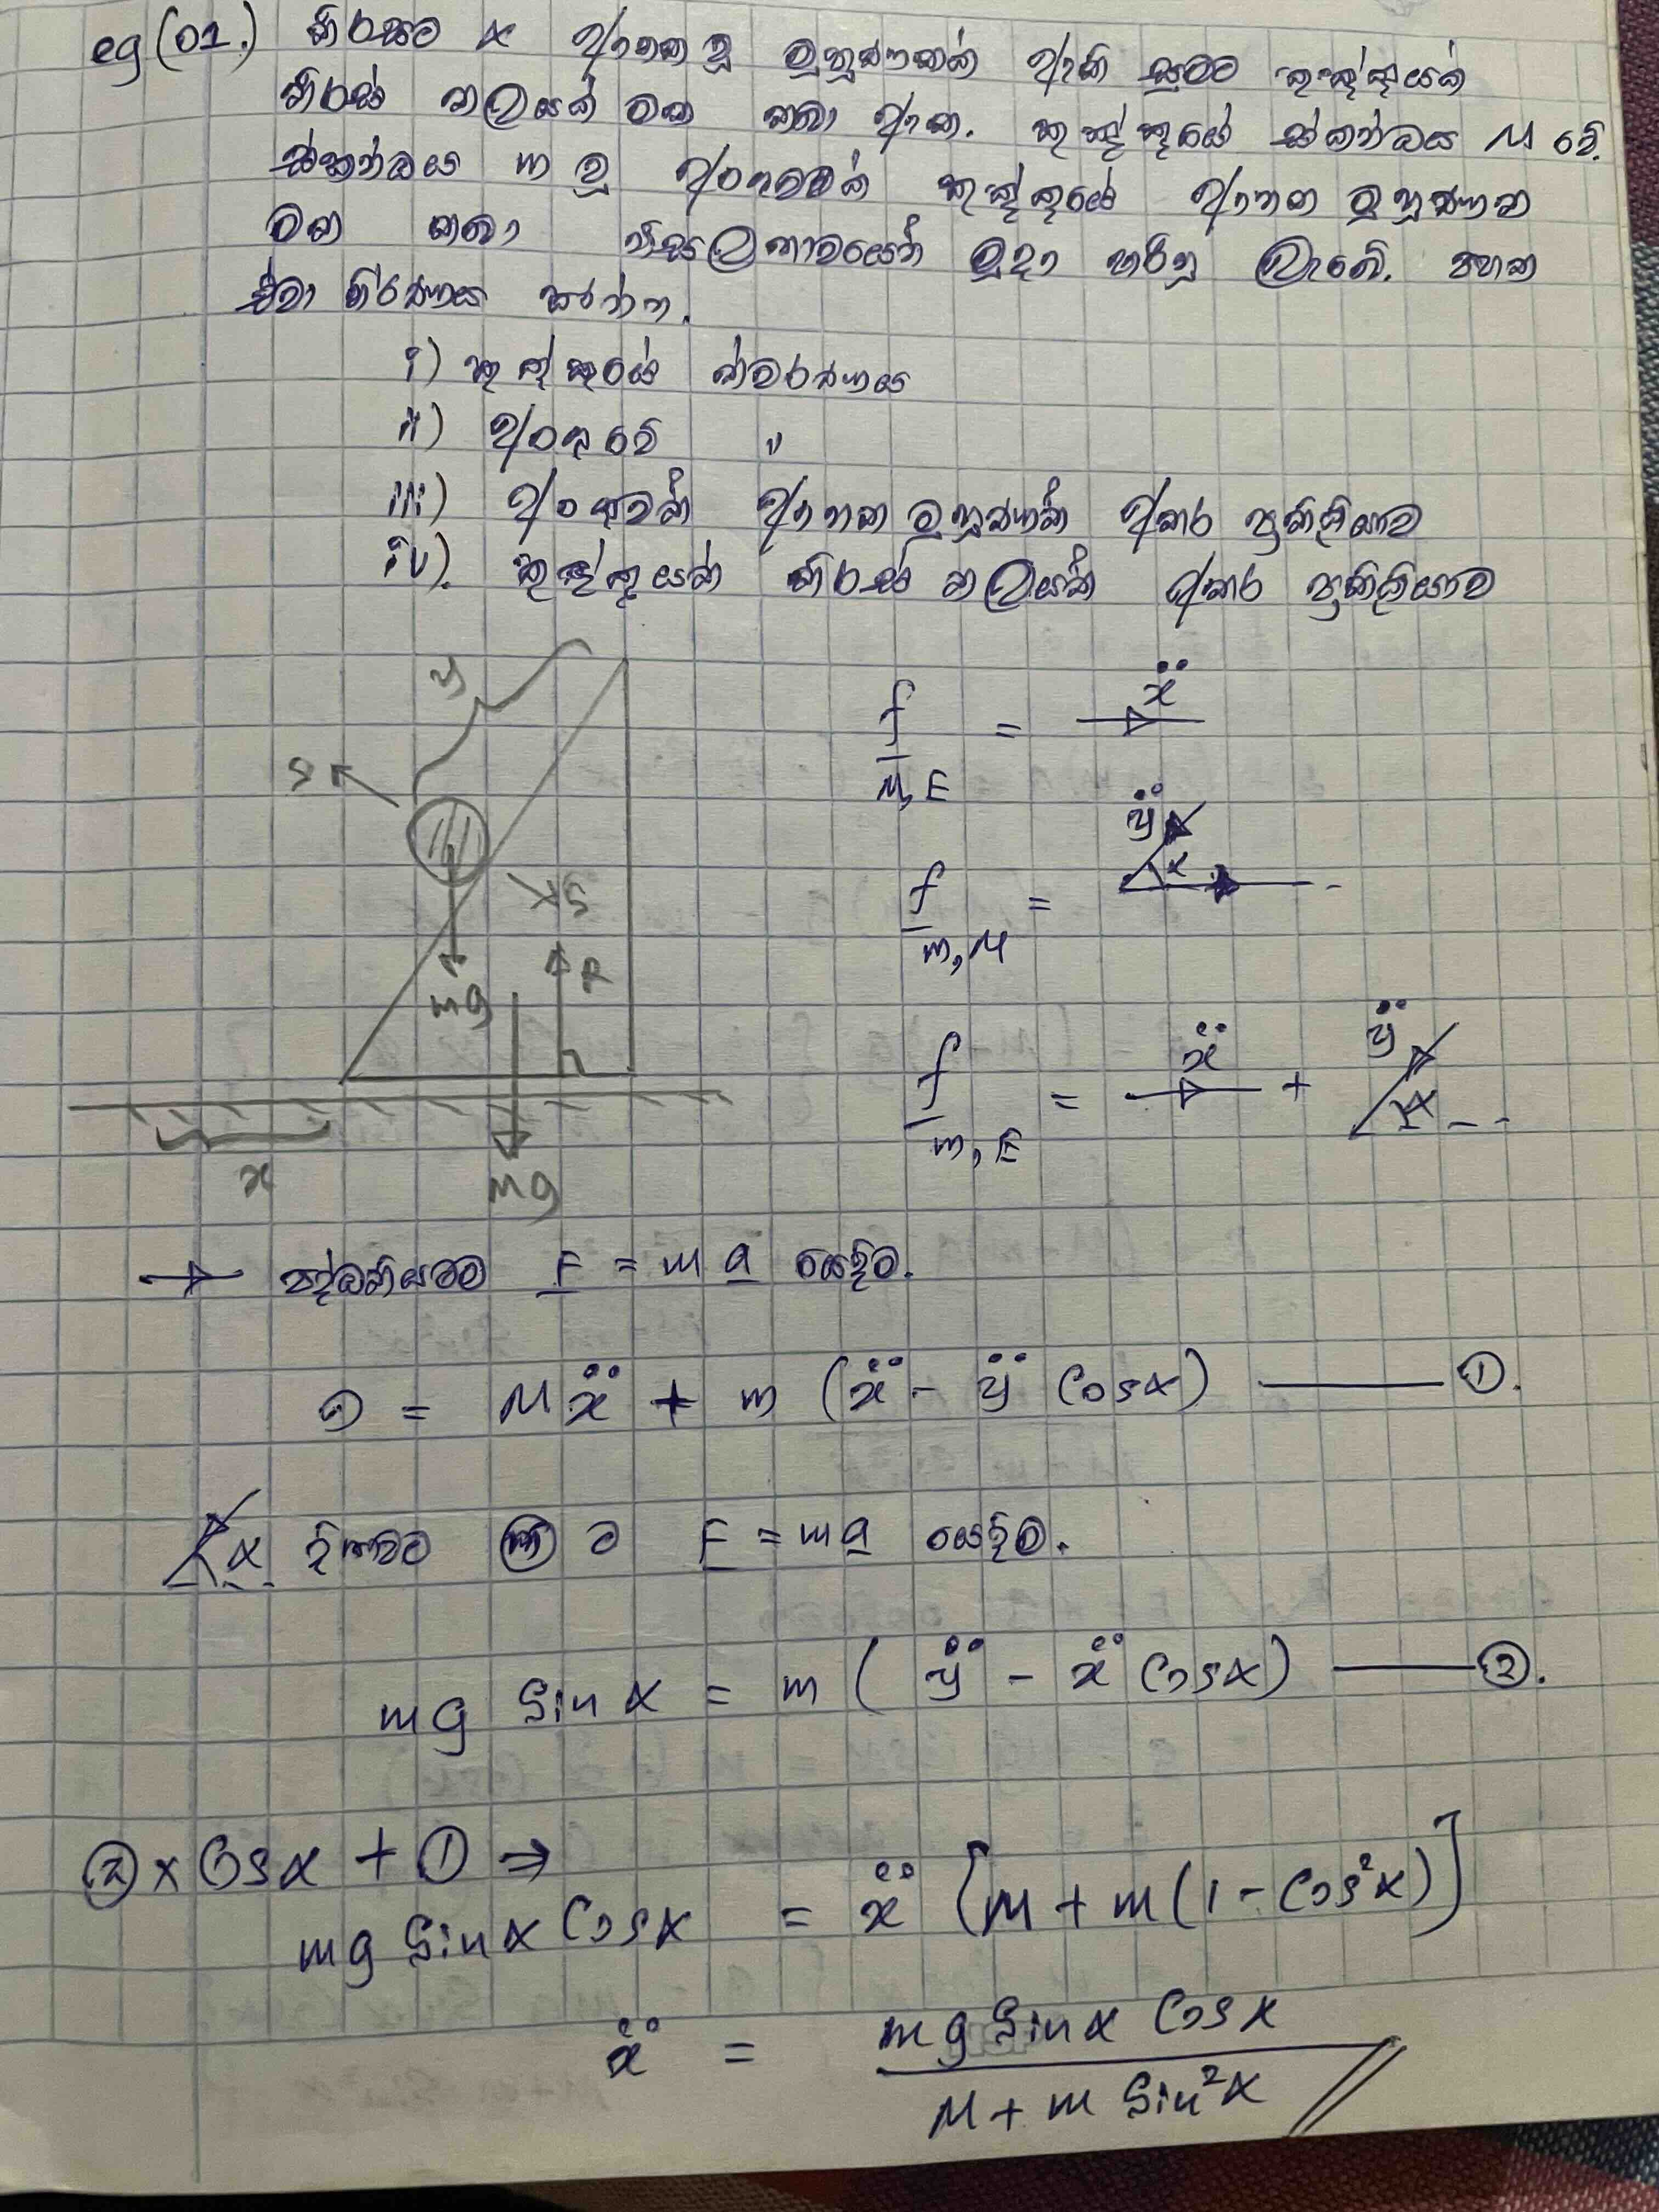 eg (01.) තිරසට α ආනත වූ මුහුණතක් ඇති සුමට කුඤ්ඤයක්
තිරස් තලයක් මත තබා ඇත. කුඤ්ඤයේ ස්කන්ධය M වේ.
ස්කන්ධය m වූ අංශුවක් කුඤ්ඤයේ ආනත මුහුණත
මත තබා නිසලතාවයෙන් මුදා හරිනු ලැබේ. පහත
ඒවා නිර්ණය කරන්න.
i) කුඤ්ඤයේ ත්වරණය
ii) අංශුවේ "
iii) අංශුවත් ආනත මුහුණතත් අතර ප්‍රතික්‍රියාව
iv). කුඤ්ඤයත් තිරස් තලයත් අතර ප්‍රතික්‍රියාව
y
S
S
R
mg
x
Mg
f M, E = ẍ
f m, M = ÿ α
f m, E = ẍ + ÿ α
→ පද්ධතියටම F = ma යෙදීම.
0 = Mẍ + m (ẍ - ÿ Cosα) ——— ①.
α දිශාවට (m) ට F = ma යෙදීම.
mg Sin α = m ( ÿ - ẍ Cosα) ——— ②.
② × Cosα + ① ⇒
mg Sinα Cosα = ẍ [M + m (1 - Cos²α)]
ẍ = mg Sinα Cosα / M + m Sin²α //